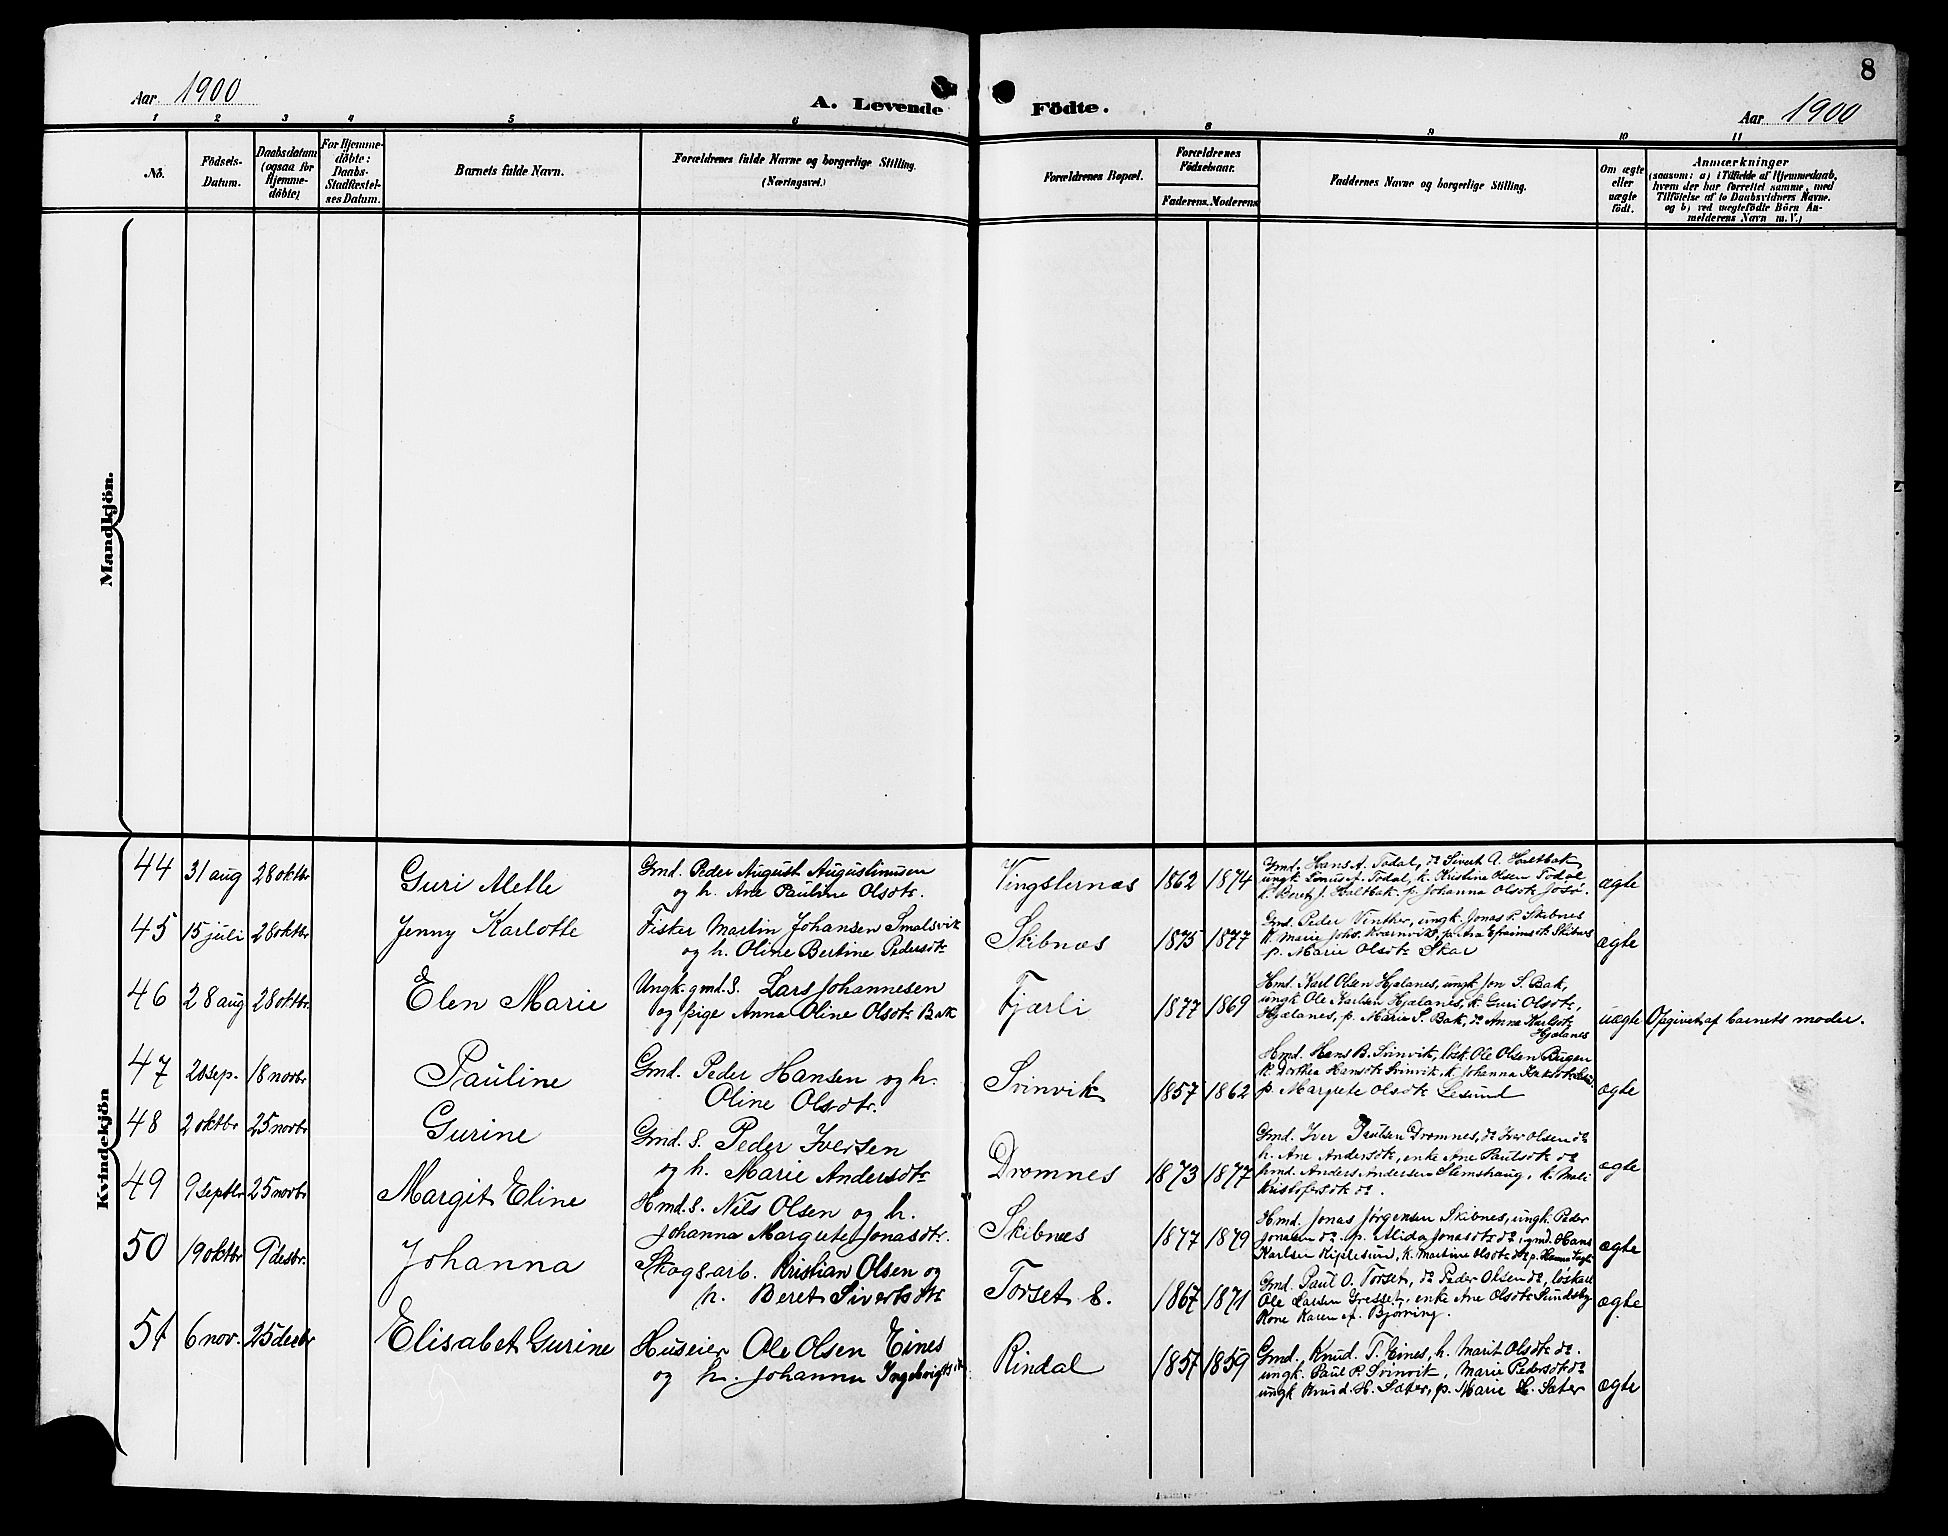 8
Aar 1900
A. Levende Födte.
Aar 1900
1 2 3 4 5 6 8 9 10 11
No.
Födsels-
Datum.
Daabsdatum
(ogsaa for
Hjemme-
döbte)
For Hjemme-
döbte:
Daabs-
Stadfæstel-
ses Datum.
Barnets fulde Navn.
Forældrenes fulde Navne og borgerlige Stilling.
(Næringsvei.)
Forældrenes Bopæl.
Forældrenes
Födselsaar.
Faderens. Moderens
Faddernes Navne og borgerlige Stilling.
Om ægte
eller
uægte
født.
Anmærkninger
(saasom: a) i Tilfælde af Hjemmedaab,
hvem der har forrettet samme, med
Tilföielse af to Daabsvidners Navne.
og b) ved uægtefödte Börn An-
melderens Navn m. V.)
Mandkjön.
Kvindekjön
44 31 aug 28 oktbr Guri Mette
Gmd. Peder August Augustinusen
og h. Ane Pauline Olsdtr.
Vingsternæs 1862 1874
Gmd. Hans A. Todal, do Sivert A. Haltbak
ungk. Tomas P. Todal, k. Kristine Olsen Todal
k. Beret J. Haltbak, p. Johanna Olsdtr
ægte
45 15 juli 28 oktbr Jenny Karlotte
Fisker Martin Johansen Smalsvik
og h. Oline Bertine Pedersdtr
Skibnæs 1875 1877
Gmd. Peder Vinther, ungk. Jonas P. Skibnes
k. Marie Johs. Kværnvik, p. Ana Efraimsdtr Skibnes
p. Marie Olsdtr Skar
ægte
46 28 aug 28 oktbr Elen Marie
Ungk. gmd. S. Lars Johannesen
og pige Anna Oline Olsdtr Bak
Fjærli 1877 1869
Hmd. Karl Olsen Hjelanes, ungk Jon S. Bak,
ungk Ole Karlsen Hjelanes, k. Guri Olsdtr,
Hjælanes, p. Marie S. Bak, do Anna Karlsdtr
Hjelanes
uægte Opgivet af barnets moder.
47 2 sep. 18 novbr Pauline
Gmd. Peder Hansen og h.
Oline Olsdtr.
Svinvik 1857 1862
Hmd. Hans B. Svinvik, løsk. Ole Olsen Bugen
k. Dorthea Hansdtr Svinvik, k. Johanna
p. Margrete Olsdtr Lesund
ægte
48 2 oktbr 25 novbr Gurine
Gmd. S. Peder Iversen
og h. Marie Andersdtr
Dromnes 1873 1877
Gmd. Iver Paulsen Dromnes, do Iver Olsen do
h. Ane Andersdtr, enke Ane Paulsdtr do
hmd. Anders Andersen Slemshaug, k. Mali
Kristofersdtr do.
ægte
49 9 septbr 25 novbr Margit Eline
Hmd. S. Nils Olsen og h.
Johanna Margrete Jonasdtr.
Skibnes 1877 1879
Hmd. Jonas Jørgensen Skibnes, ungk. Peder
Jonasen do. p. Alida Jonasdtr do, gmd. Hans
Karlsen, k. Martine Olsdtr do, p. Hanna
ægte
50 19 oktbr 9 desbr. Johanna
Skogsarb. Kristian Olsen og
h. Beret Sivertsdtr
Torset S. 1867 1871
Gmd. Paul O. Torset, do Peder Olsen do, løskarl
Ole Larsen Gresset, enke Ane Olsdtr Sundsby
Kone Karen P. Bjørring.
ægte
51 6 nov. 25 desbr Elisabet Gurine
Huseier Ole Olsen Eines
og h. Johanna Ingebrigtsdtr
Rindal 1857 1859
Gmd. Knud T. Eines, h. Marit Olsdtr do.
ungk. Paul P. Svinvik, Marie Pedersdtr do
ungk Knud H. Sæter, p. Marie L. Sæter
ægte